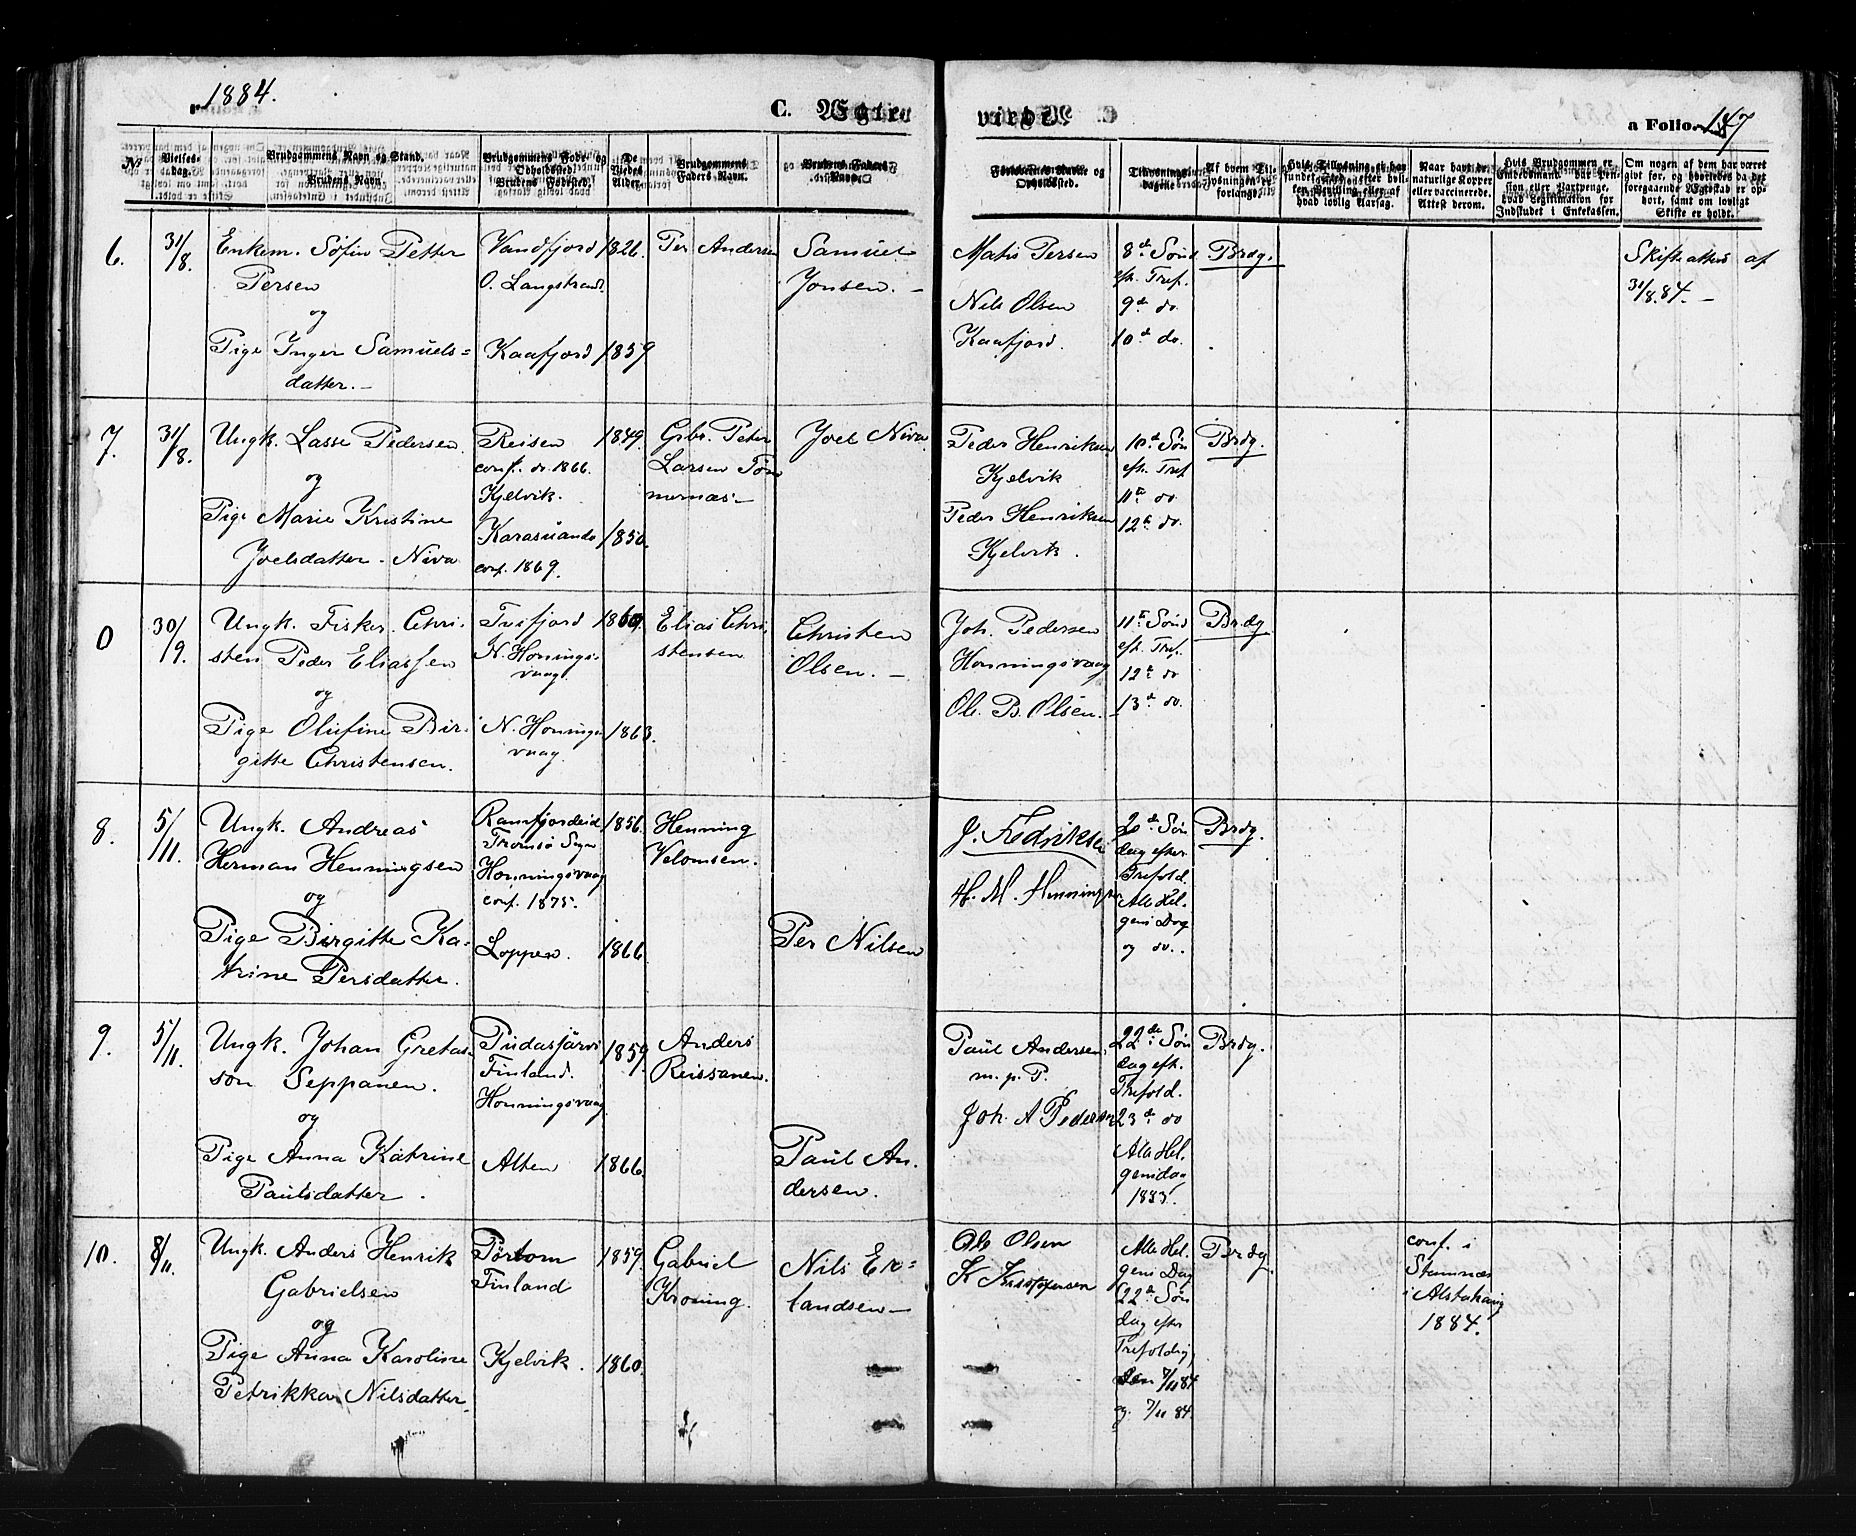 1884.
C. Ægte
viede
a Folio. 147
No
Vielses-
dag.
Brudgommens Navn og Stand.
Brudens Navn.
Brudgommens Føde- og
Opholdssted.
Brudens Fødested.
De
Viedes
Alder.
Brudgommens
Faders Navn.
Brudens Faders
Navn.
Forlovernes Navne og
Opholdssted.
Tillysnings-
dagene
Af hvem Til-
lysningen er
forlangt.
Hvis Tillysning ei har
fundet Sted, efter hvil-
ken Bevilling eller af
hvad lovlig Aarsag.
Naar havt de
naturlige Kopper
eller vaccinerede.
Attest derom.
Hvis Brudgommen er
Embedsmand, har Pen-
sion eller Vartpenge,
hvad Legitimation for
Indskudet i Enkekassen.
Om nogen af dem har været
givt før, og hvorledes da det
foregaaende Ægteskab er op-
hørt, samt om lovligt
Skifte er holdt.
6.
31/8.
Enkem. Søfin Petter
Persen
og
Pige Inger Samuels=
datter. –
Vandfjord
O. Langstrand.
Kaafjord
1826.
1859
Per Andersen
Samuel
Jonsen. –
Matis Persen
Nils Olsen
Kaafjord.
8d Sønd
eft. Tref.
9d do.
10d do.
Brdg.
Skifteattest af
31/8.84. –
7.
31/8.
Ungk. Lasse Pedersen.
og
Pige Marie Kristine
Joelsdatter - Niva
Reisen
conf. do. 1866.
Kjelvik.
Karasuando
conf. 1869.
1849.
1850.
Grbr. Peter
Larsen Tøm
mernæs –
Joel Niva
Peder Henriksen
Kjelvik
Peder Henriksen
Kjelvik.
10d Søn
eft. Tref.
11te do.
12te do.
Brdg.
0
30/9.
Ungk. Fisker. Chri-
sten Peder Eliassen
og
Pige Olufine Bir-
gitte Christensen.
Tufjord
N. Honnings-
vaag.
N. Honnings
vaag.
1860.
1863.
Elias Chri-
stensen
Christen
Olsen. –
Joh. Pedersen
Honningsvaag
Ol. B. Olsen. –
11te Sønd
eft. Tref.
12te do
13d do.
Brdg.
8.
5/11.
Ungk. Andreas
Herman Henningsen
og
Pige Birgitte Ka-
trine Persdatter.
Ramfjordeid
Tromsø Sogn
Honningsvaag
conf. 1875.
Loppen.
1856.
1866.
Henning
Velomsen.
Per Nilsen
J. Fredriksen
H. M. Henningsen
20de Søn
dag efter
Trefold.
Alle Hel-
gens Dag
og do.
Brdg.
9.
5/11.
Ungk. Johan Gretas-
son Seppanen.
og
Pige Anna Katrine
Paulsdatter.
Pudasjärvi
Finland.
Honningsvaag.
Alten
1859.
1866.
Anders
Reissanen.
Paul An-
dersen.
Paul Andersen.
m. p. P.
Joh. A Pedersen
22de Søn
dag eft.
Trefold.
23d do
Alle Hel-
gensdag
1883.
Brdg.
10.
8/11.
Ungk. Anders Henrik
Gabrielsen
og
Pige Anna Karoline
Petrikka Nilsdatter.
Pørtom
Finland
Kjelvik.
1859.
1860.
Gabriel
Kroning.
Nils Er=
landsen –
Ole Olsen
K Kristoffersen
Alle Hel-
gens Dag
22de Søn
dag efter
Trefoldig.
den 7/11 84
og 7/11 84.
Brdg.
conf. i
Stamnæs
i Alstahaug
1884.